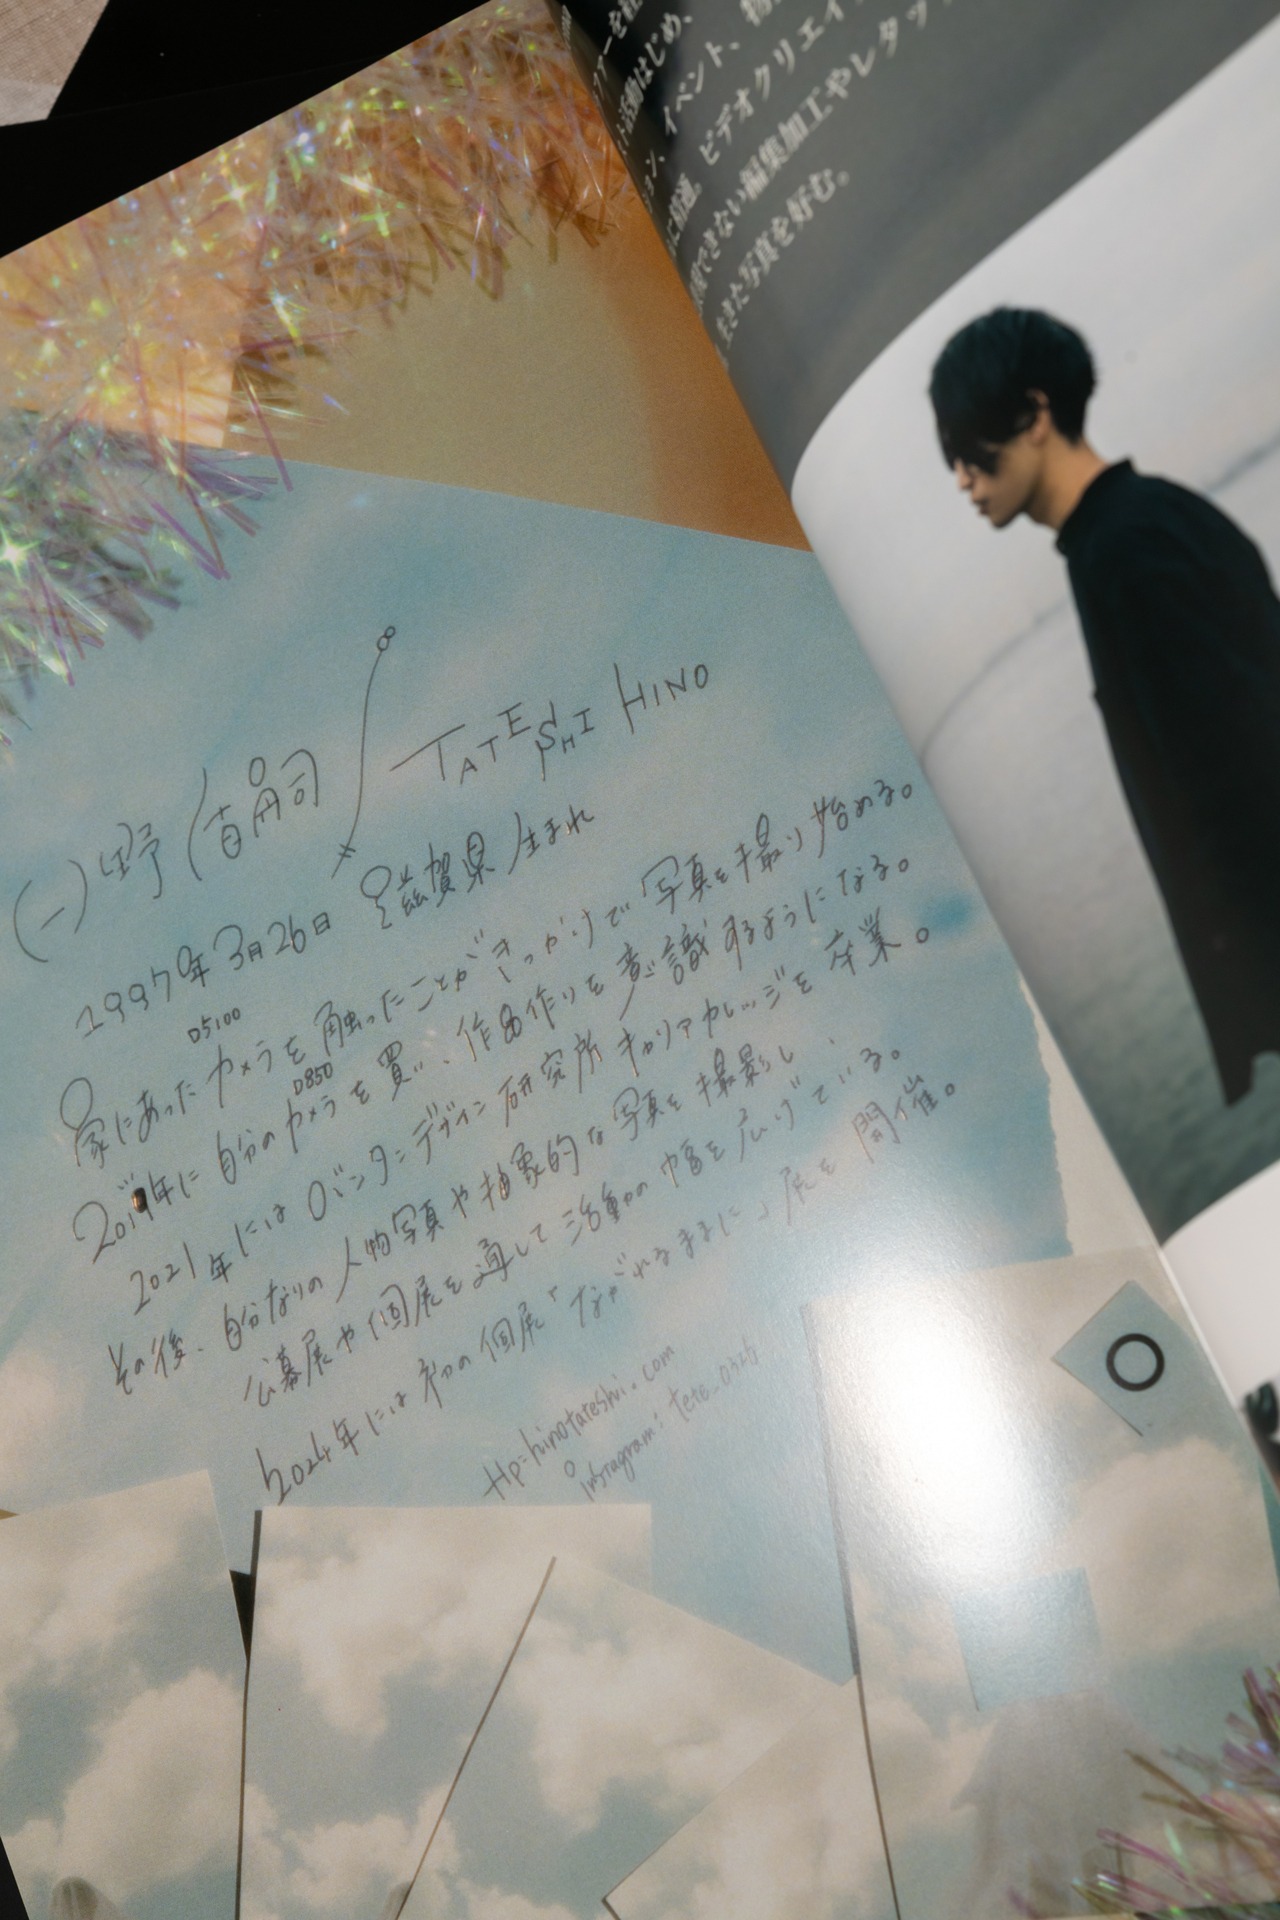 日野 直嗣 / TATESHI HINO
1997年3月26日 滋賀県生まれ
D5100
家にあったカメラを触ったことがきっかけで写真を撮り始める。
D850
2019年に自分のカメラを買い、作品作りを意識するようになる。
2021年にはバンタンデザイン研究所キャリアカレッジを卒業。
その後、自分なりの人物写真や抽象的な写真を撮影し、
公募展や個展を通して活動の幅を広げている。
2024年には初の個展「ながれるままに」展を開催。
Hp: hinotateshi.com
instagram: tete_0326
ファーを
活動はじめ、
イベント、物
ビデオクリエイ
できない編集加工やレタッ
生きた写真を好む。